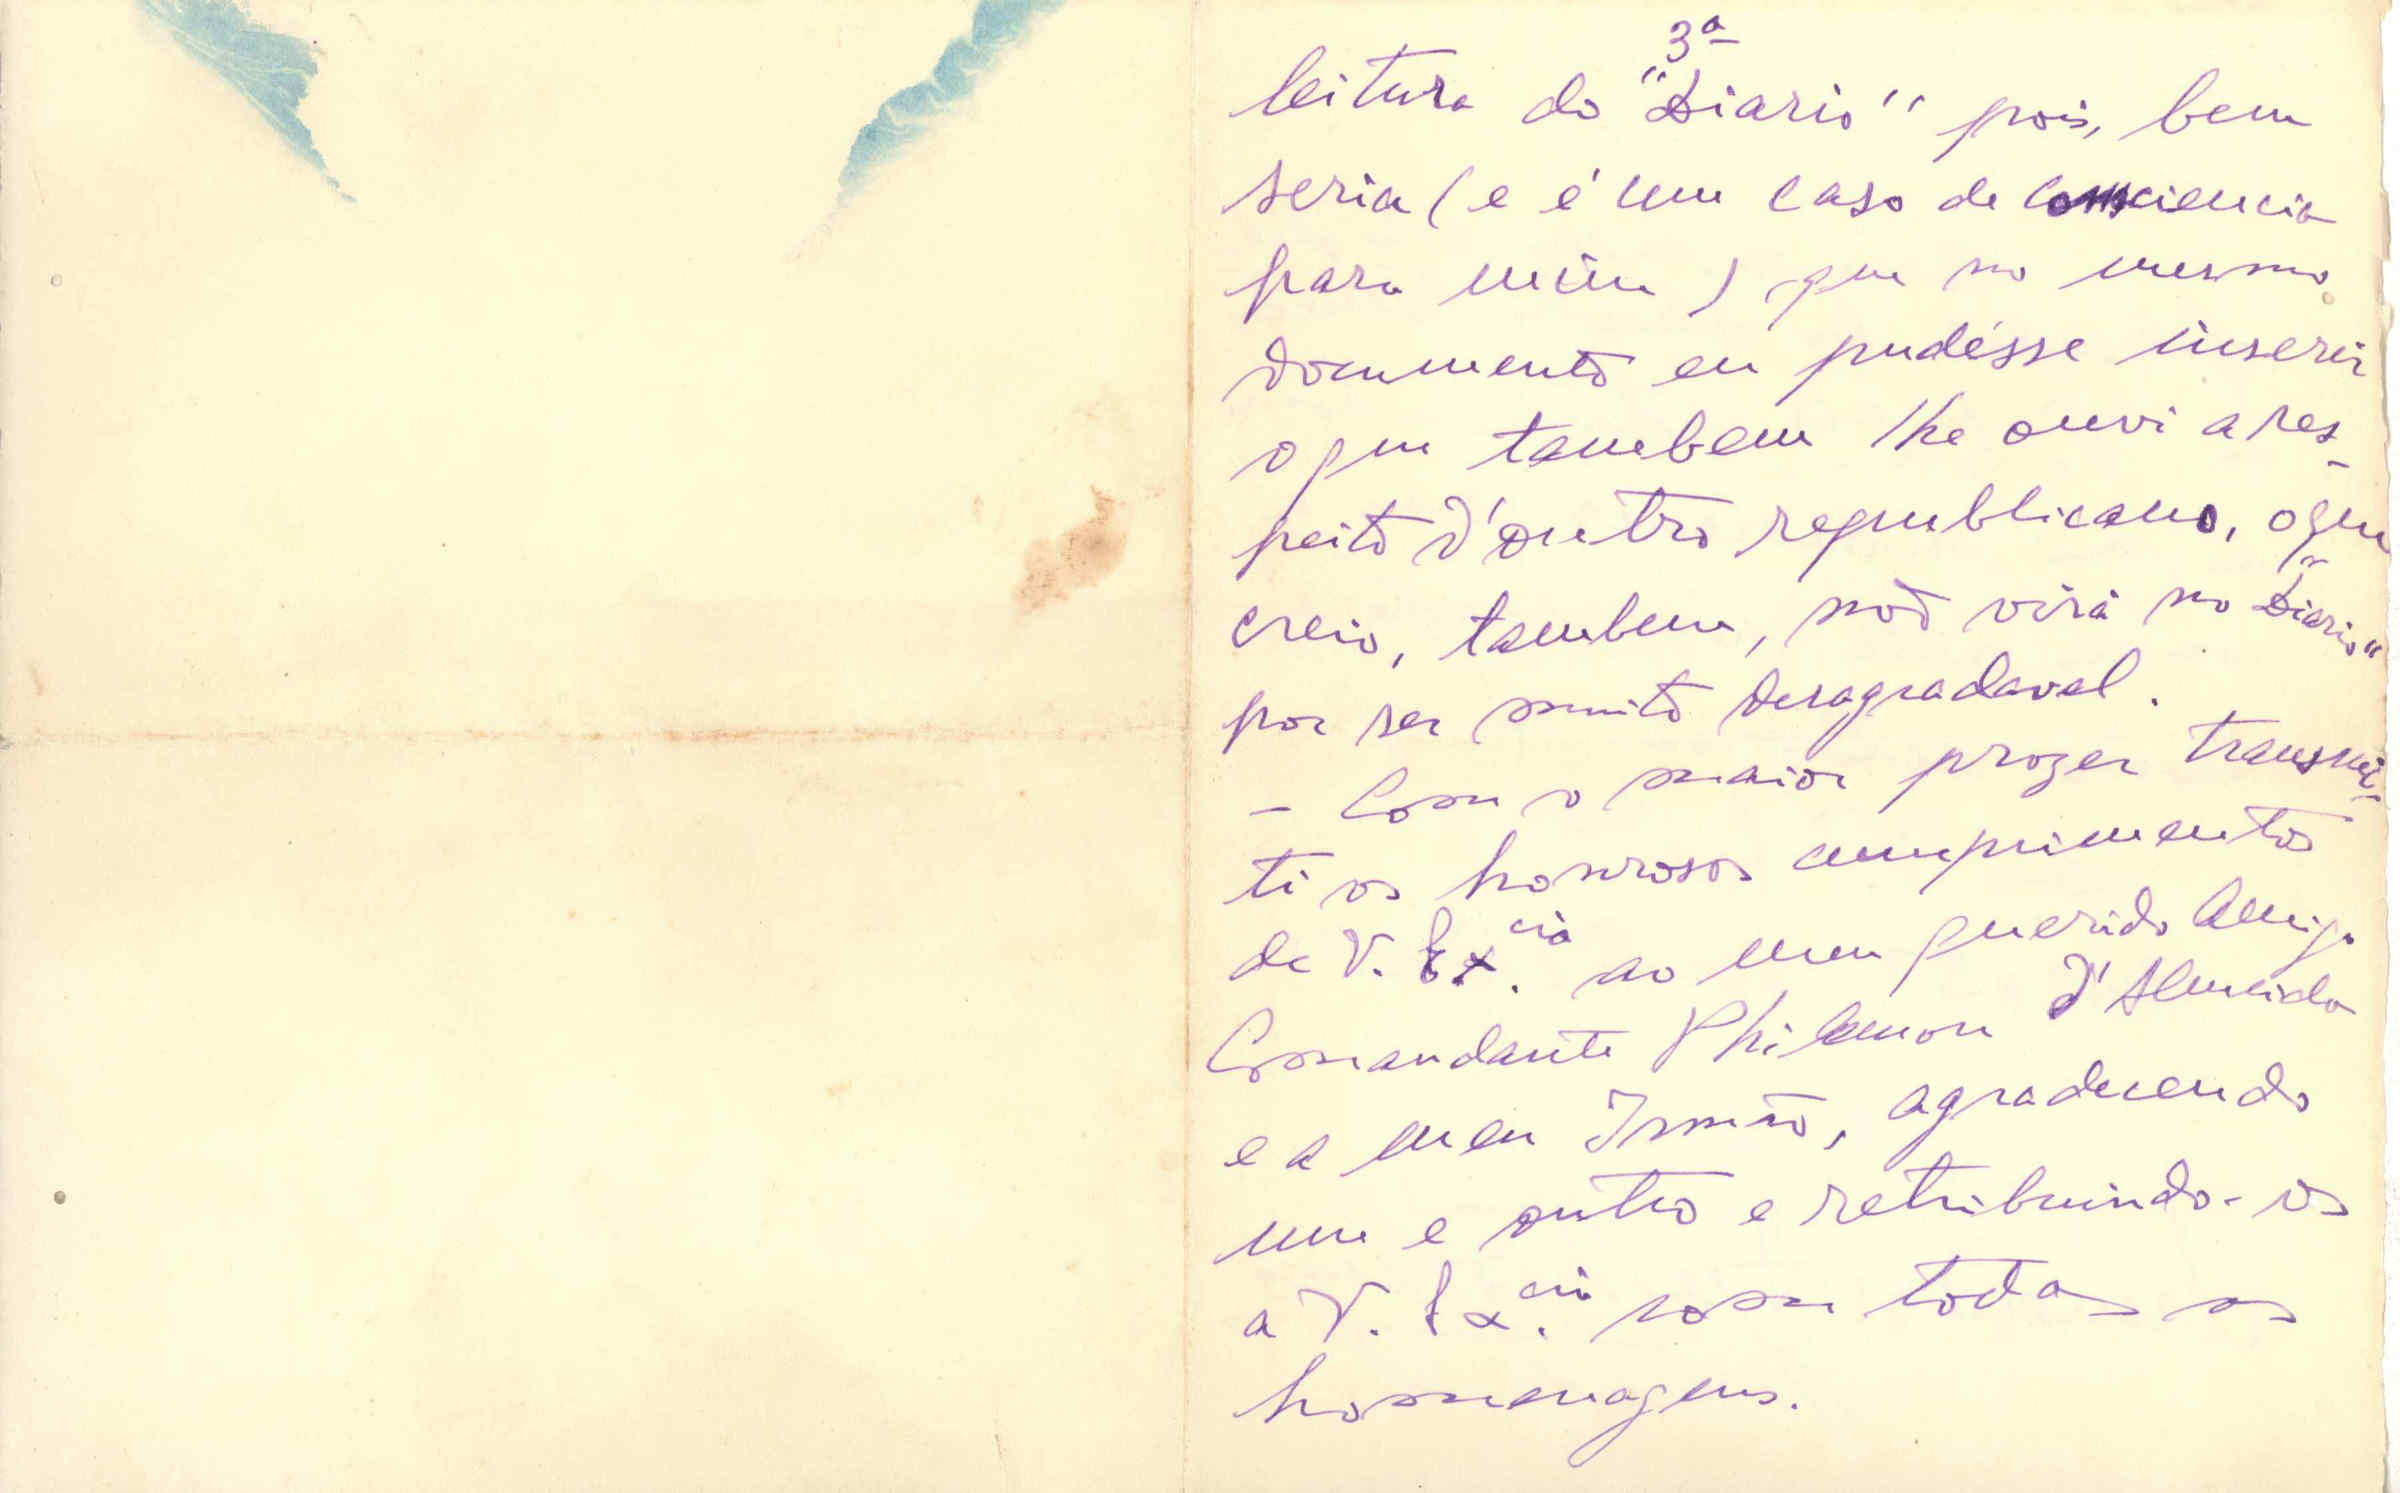 3ª
leitura do "Diario" pois, bem
seria (e é um caso de consciencia
para mim) que no mesmo
documento eu pudésse inserir
o que tambem lhe ouvi a res-
peito d'outro republicano, o que
creio, tambem, não virá no "Diario"
por ser muito desagradavel.
- Com o maior prazer transmi-
ti os honrosos cumprimentos
de V. Ex.cia ao meu querido Amigo
Comandante Philemon d'Almeida
e a meu Irmão, agradecendo
um e outro e retribuindo-os
a V. Ex.cia com todas as
homenagens.